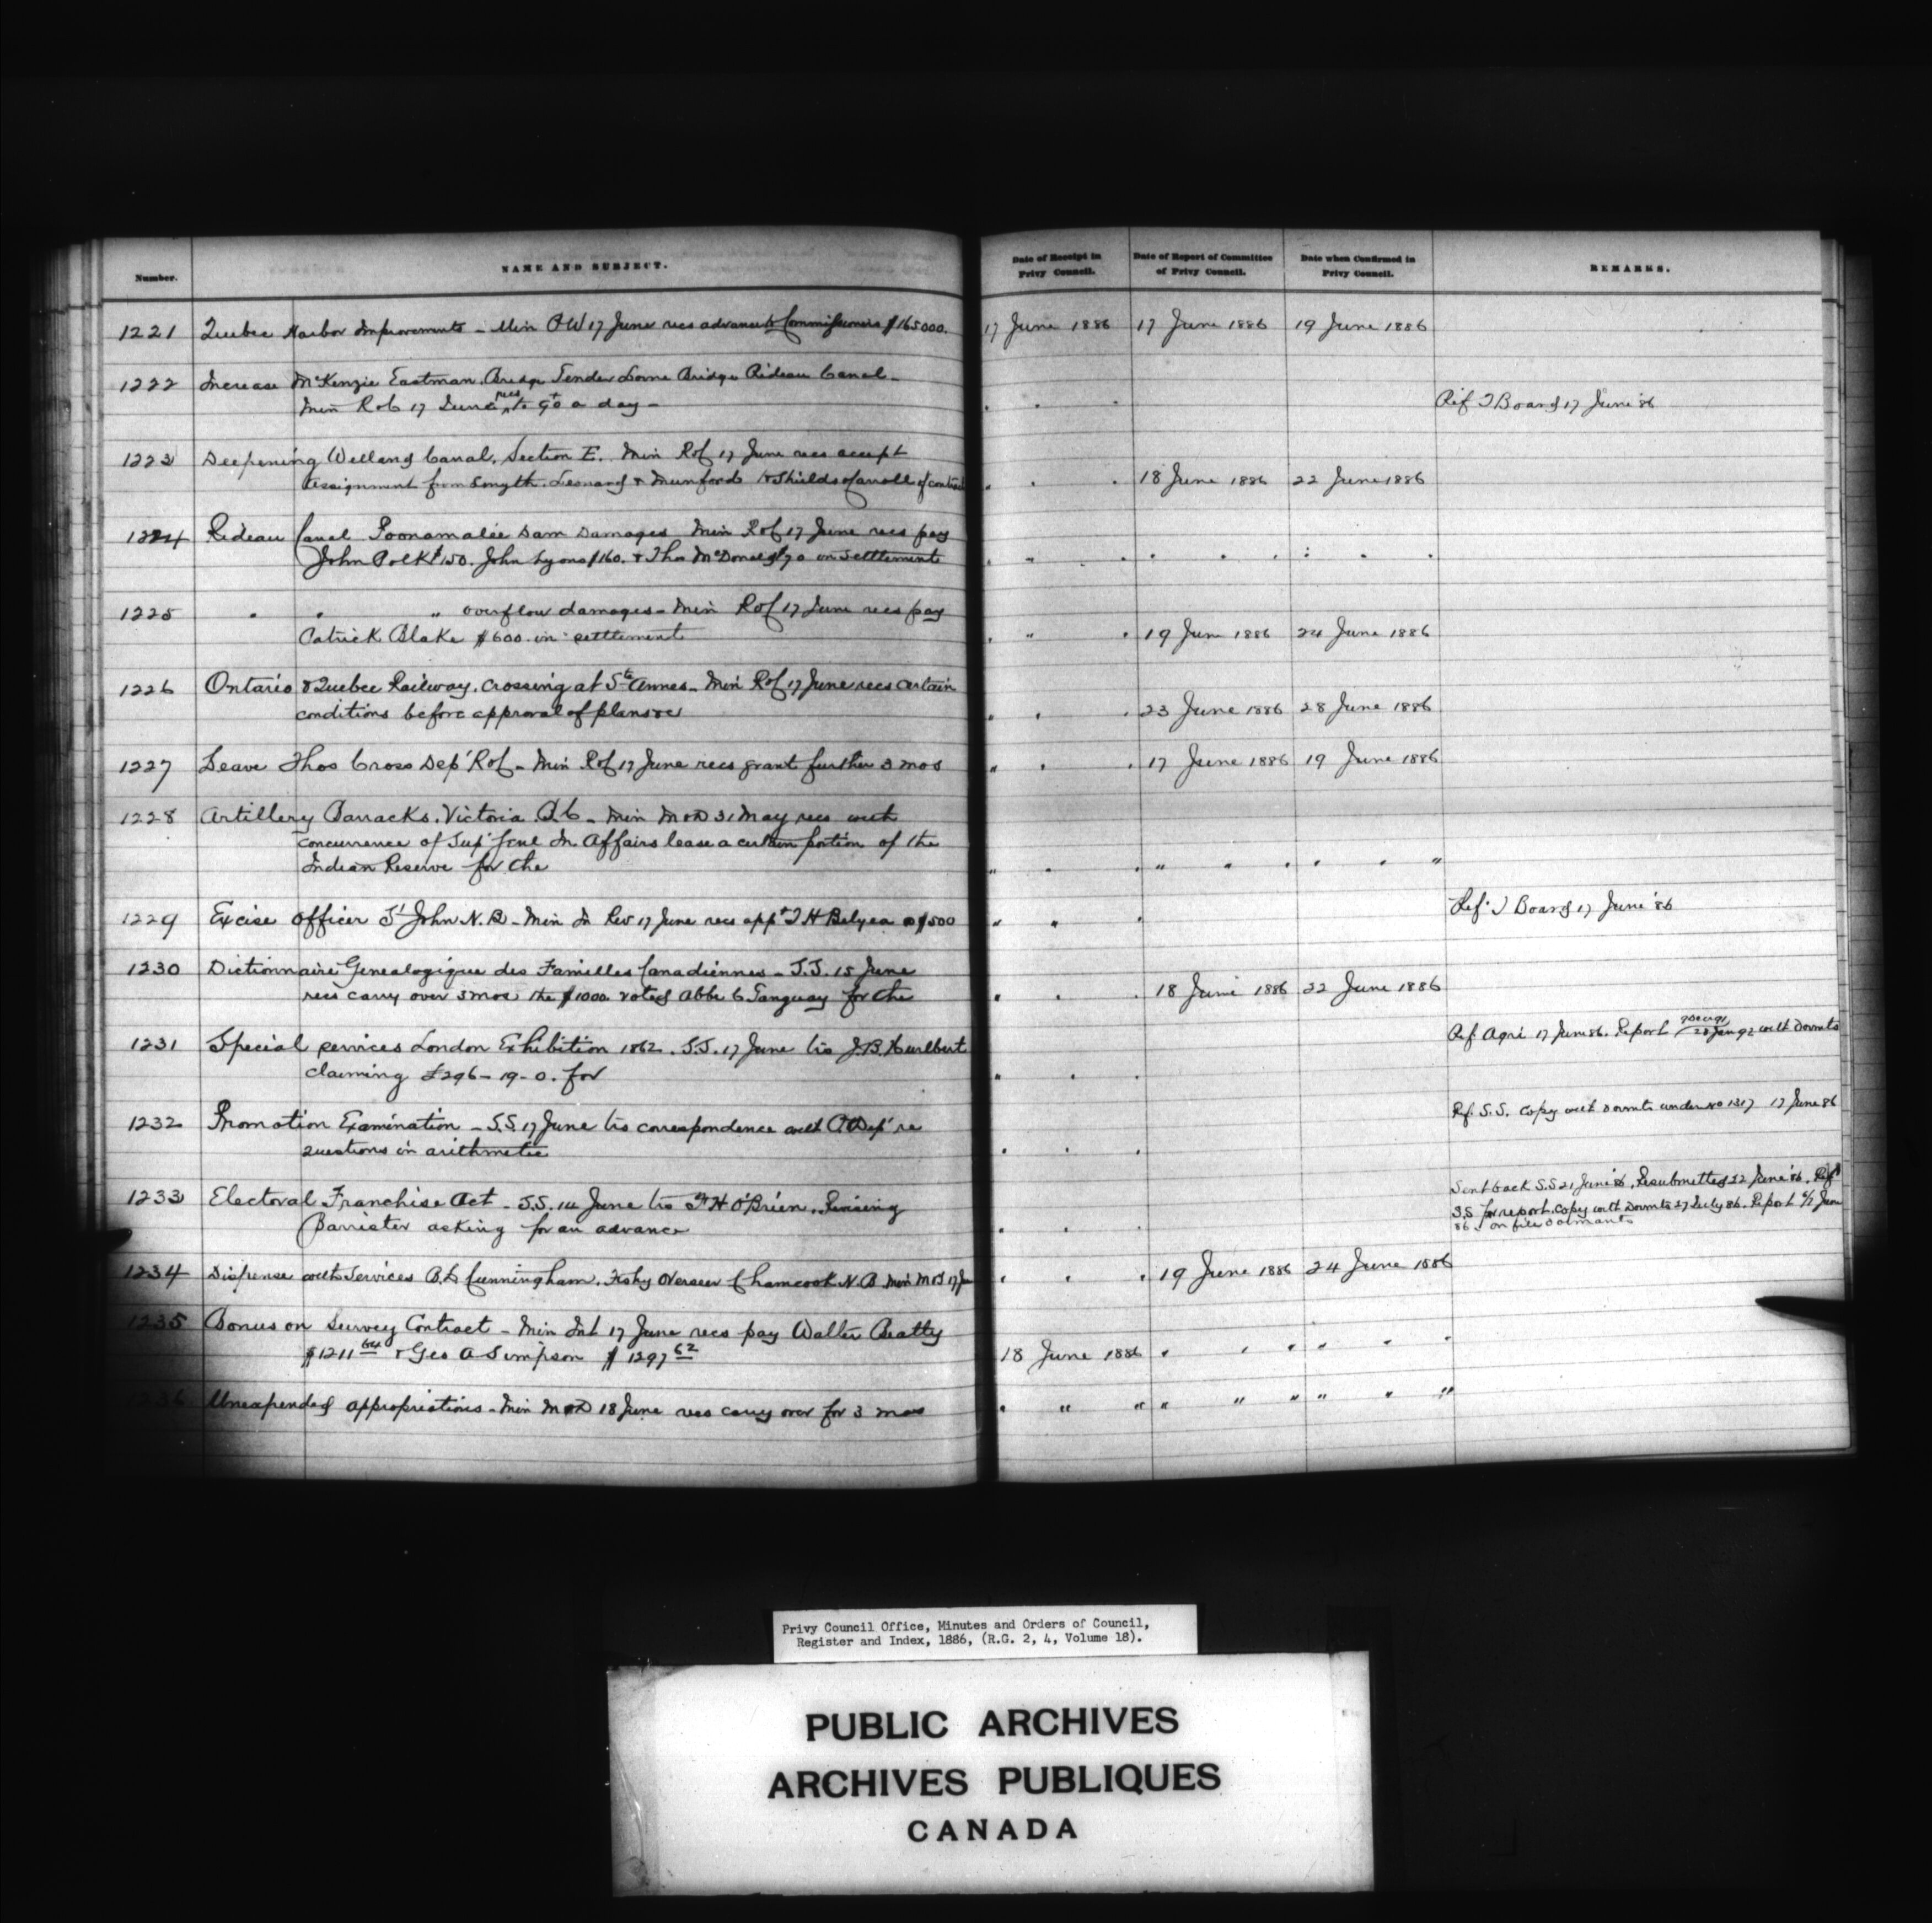 Number.
NAME AND SUBJECT.
Date of Receipt in Privy Council.
Date of Report of Committee of Privy Council.
Date when Confirmed in Privy Council.
REMARKS.
1221 Quebec Harbor Improvements - Min P W 17 June recs advance to Commissioners $165000. 17 June 1886 17 June 1886 19 June 1886
1222 Increase McKenzie Eastman. Bridge Tender Lorne Bridge Rideau Canal -
Min R & C 17 June recs to 90 a day - Ref T Board 17 June '86
1223 Deepening Welland Canal. Section E. Min R & C 17 June recs accept
assignment from Smyth. Leonard & Mumford to Shields & Carroll of contract 18 June 1886 22 June 1886
1224 Rideau Canal Poonamalie Dam Damages Min R & C 17 June recs pay
John Polk $150. John Lyons $160. & Thos McDonald $70 in settlement
1225 " " " overflow damages - Min R & C 17 June recs pay
Patrick Blake $600. in settlement 19 June 1886 24 June 1886
1226 Ontario & Quebec Railway. Crossing at Ste Annes - Min R & C 17 June recs certain
conditions before approval of plans &c 23 June 1886 28 June 1886
1227 Leave Thos Cross Dep R & C - Min R & C 17 June recs grant further 3 mos 17 June 1886 19 June 1886
1228 Artillery Barracks. Victoria. B.C - Min M & D 31 May recs with
concurrence of Sup Genl In Affairs lease a certain portion of the
Indian Reserve for the " " " " " "
1229 Excise Officer St John N.B - Min In Rev 17 June recs appt T H Belyea @ $500 Ref. T Board 17 June '86
1230 Dictionnaire Genealogique des Familles Canadiennes - S.S. 15 June
recs carry over 3 mos the $1000. voted Abbe C Tanguay for the 18 June 1886 22 June 1886
1231 Special services London Exhibition 1862. S.S. 17 June tr's J.B. Hurlbert Ref. Agri 17 June 86. Report 28 Jany 92 with Dormts
claiming £296-19-0. for
1232 Promotion Examination - S.S. 17 June tr's correspondence with P O Dep re Ref. S.S. Copy with Dormts under No 1317 17 June 86
questions in arithmetic
1233 Electoral Franchise Act - S.S. 14 June tr's H O'Brien. Revising Sent back S.S 21 June '86. Resubmitted 22 June '86. Ref
Barrister asking for an advance S.S for report. Copy with Dormts 27 July 86. Report June
86. on file Dormants
1234 Dispense with Services B. L. Cunningham. Fishy Overseer Chamcook N.B Min M & F 17 Jun 19 June 1886 24 June 1886
1235 Bonus on Survey Contract - Min Int 17 June recs pay Walter Beatty
$1211 64 & Geo A Simpson $1297 62 18 June 1886 " " " " " "
1236 Unexpended appropriations - Min M & D 18 June recs carry over for 3 mos " " " " " " " " "
Privy Council Office, Minutes and Orders of Council,
Register and Index, 1886, (R.G. 2, 4, Volume 18).
PUBLIC ARCHIVES
ARCHIVES PUBLIQUES
CANADA